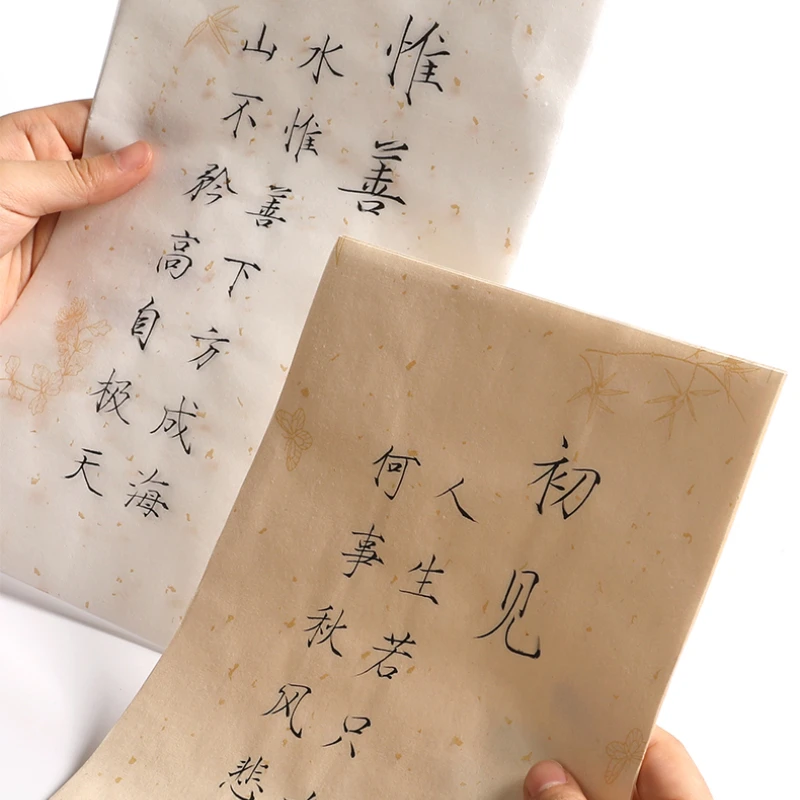 惟善
水惟善下方成海
山不矜高自极天
初见
人生若只
何事秋风悲